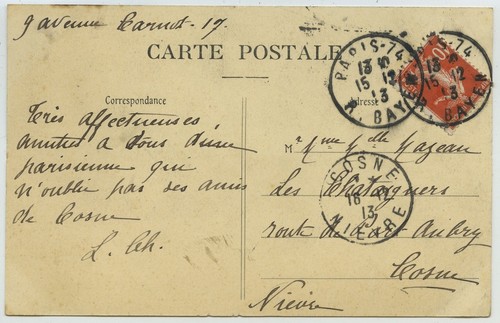 9 avenue Carnot - 17.
CARTE POSTALE
Correspondance
Adresse
Très affectueuses
amitiés à tous d'une
parisienne qui
n'oublie pas ses amis
de Cosne
L. Ch.
M Mme Mazeau
Les Châtaigners
route de
Cosne
Nièvre
PARIS-74
13
15 - 12
13
R. BAYEN
PARIS-74
13
15 12
13
R. BAYEN
10
COSNE
16 - 12
13
NIEVRE